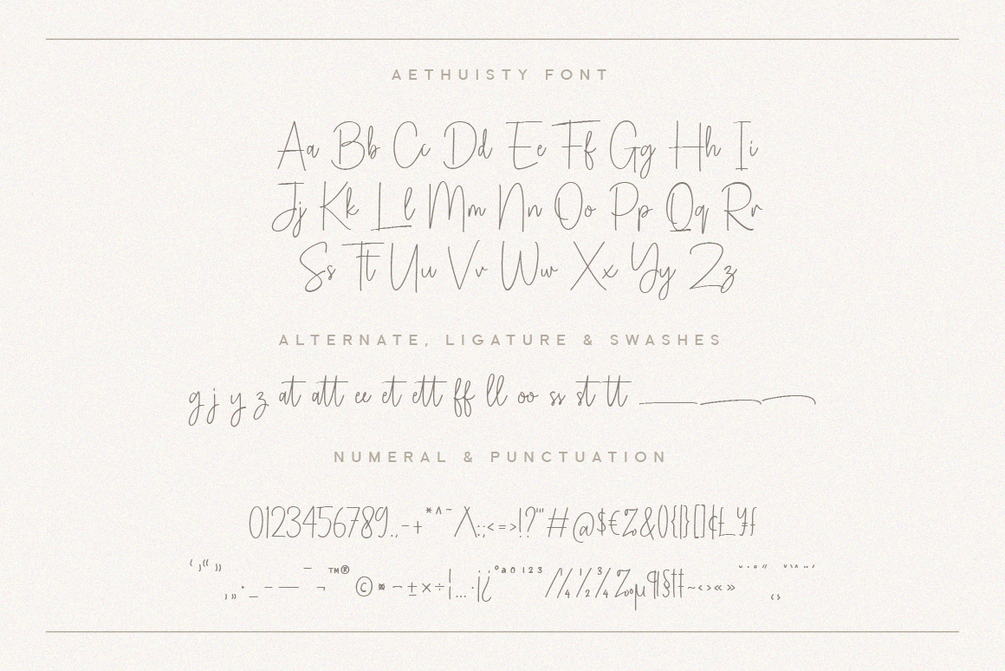 AETHUISTY FONT
Aa Bb Cc Dd Ee Ff Gg Hh Ii
Jj Kk Ll Mm Nn Oo Pp Qq Rr
Ss Tt Uu Vv Ww Xx Yy Zz
ALTERNATE, LIGATURE & SWASHES
g j y z at att ee et ett ff ll oo ss st tt
NUMERAL & PUNCTUATION
0123456789.,-+*^~/\:;<=>!?'"#@$€%&(){|}[]¢£_¥ƒ
™® © ¤ ¬ ± × ÷ ¦ … · ¡ ¿ º ª 0 1 2 3 / ¼ ½ ¾ ‰ µ ¶ § † ‡ ~ ‹ › « »